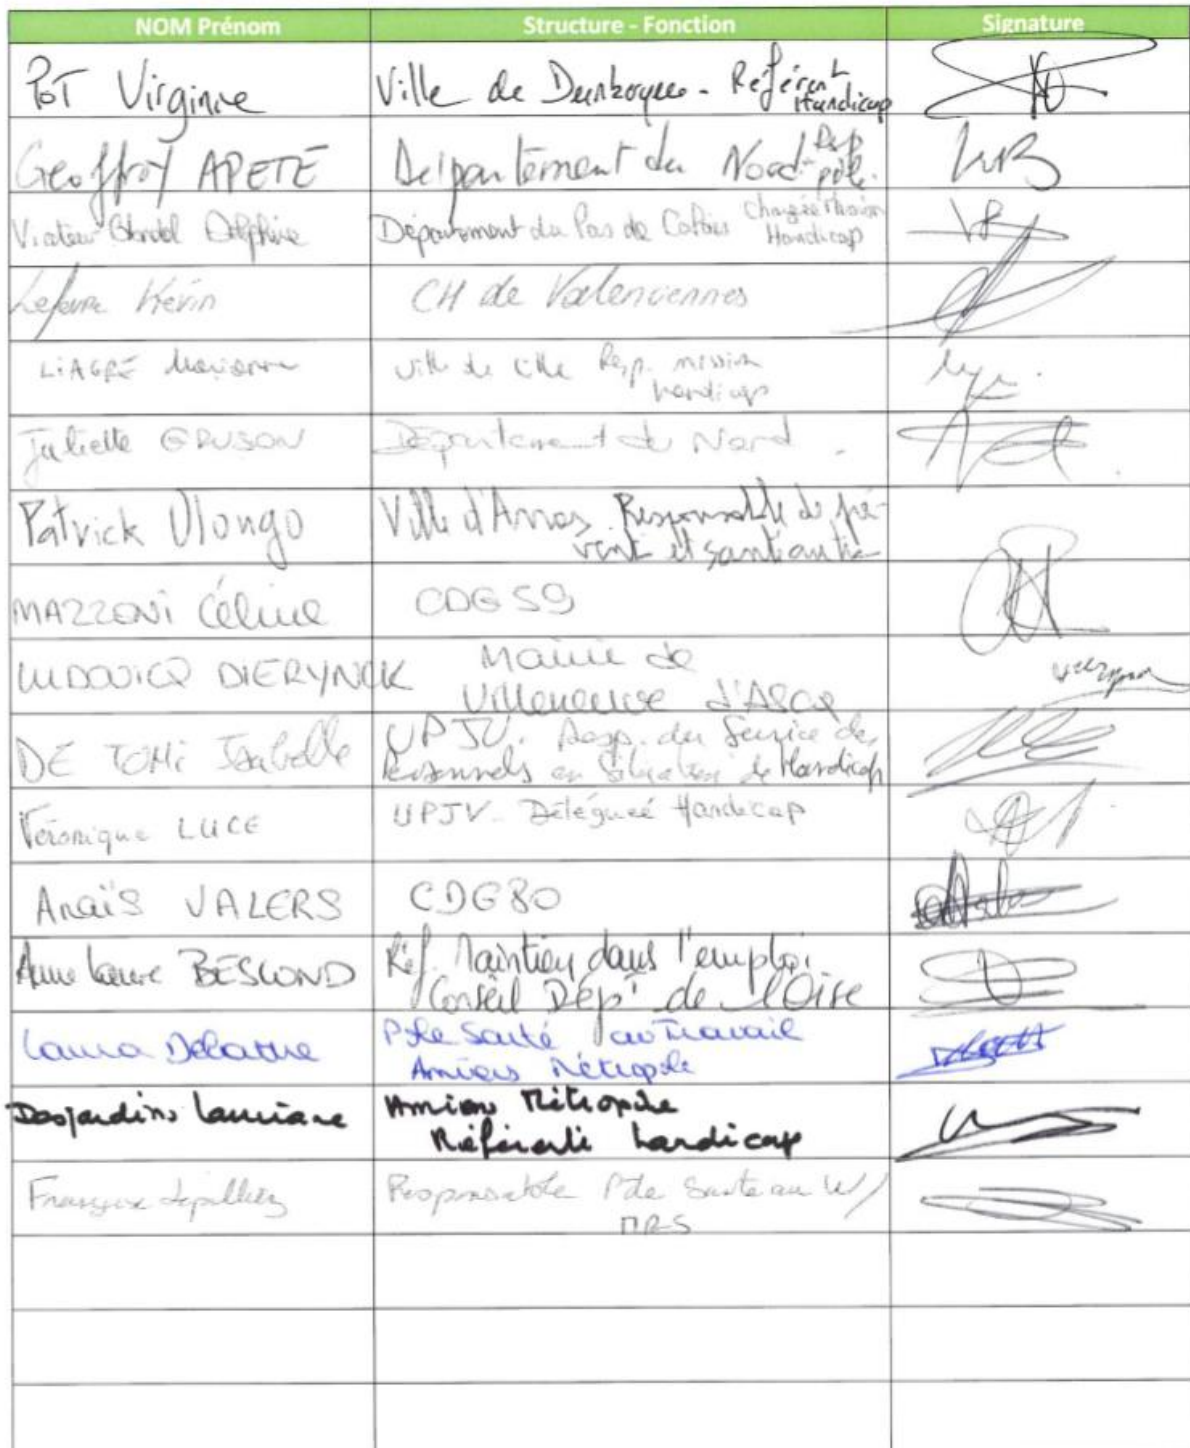 NOM Prénom Structure - Fonction Signature
POT Virginie Ville de Dunkerque - Référent
Handicap
Geoffroy APETE Département du Nord - Resp
pôle.
Delphine Département du Pas de Calais Chargée Mission
Handicap
Kévin CH de Valenciennes
LIAGRE Marianne Ville de Lille Resp. mission
handicap
Juliette GRUSON Département du Nord.
Patrick Ulongo Ville d'Arras. Responsable de pré-
vent et santé
MAZZONI Céline CDG 59
LUDOVICQ DIERYNCK Mairie de
Villeneuve d'Ascq
DE TOMI Isabelle UPJV. Resp. du Service des
Personnels en Situation de Handicap
Véronique LUCE UPJV - Déléguée Handicap
Anaïs VALERS CDG80
Anne Laure BESCOND Réf. Maintien dans l'emploi
Conseil Dépt de l'Oise
Laura Delattre Pôle Santé au Travail
Amiens Métropole
Desjardins Amiens Métropole
Référente handicap
Responsable Pôle Santé au W/